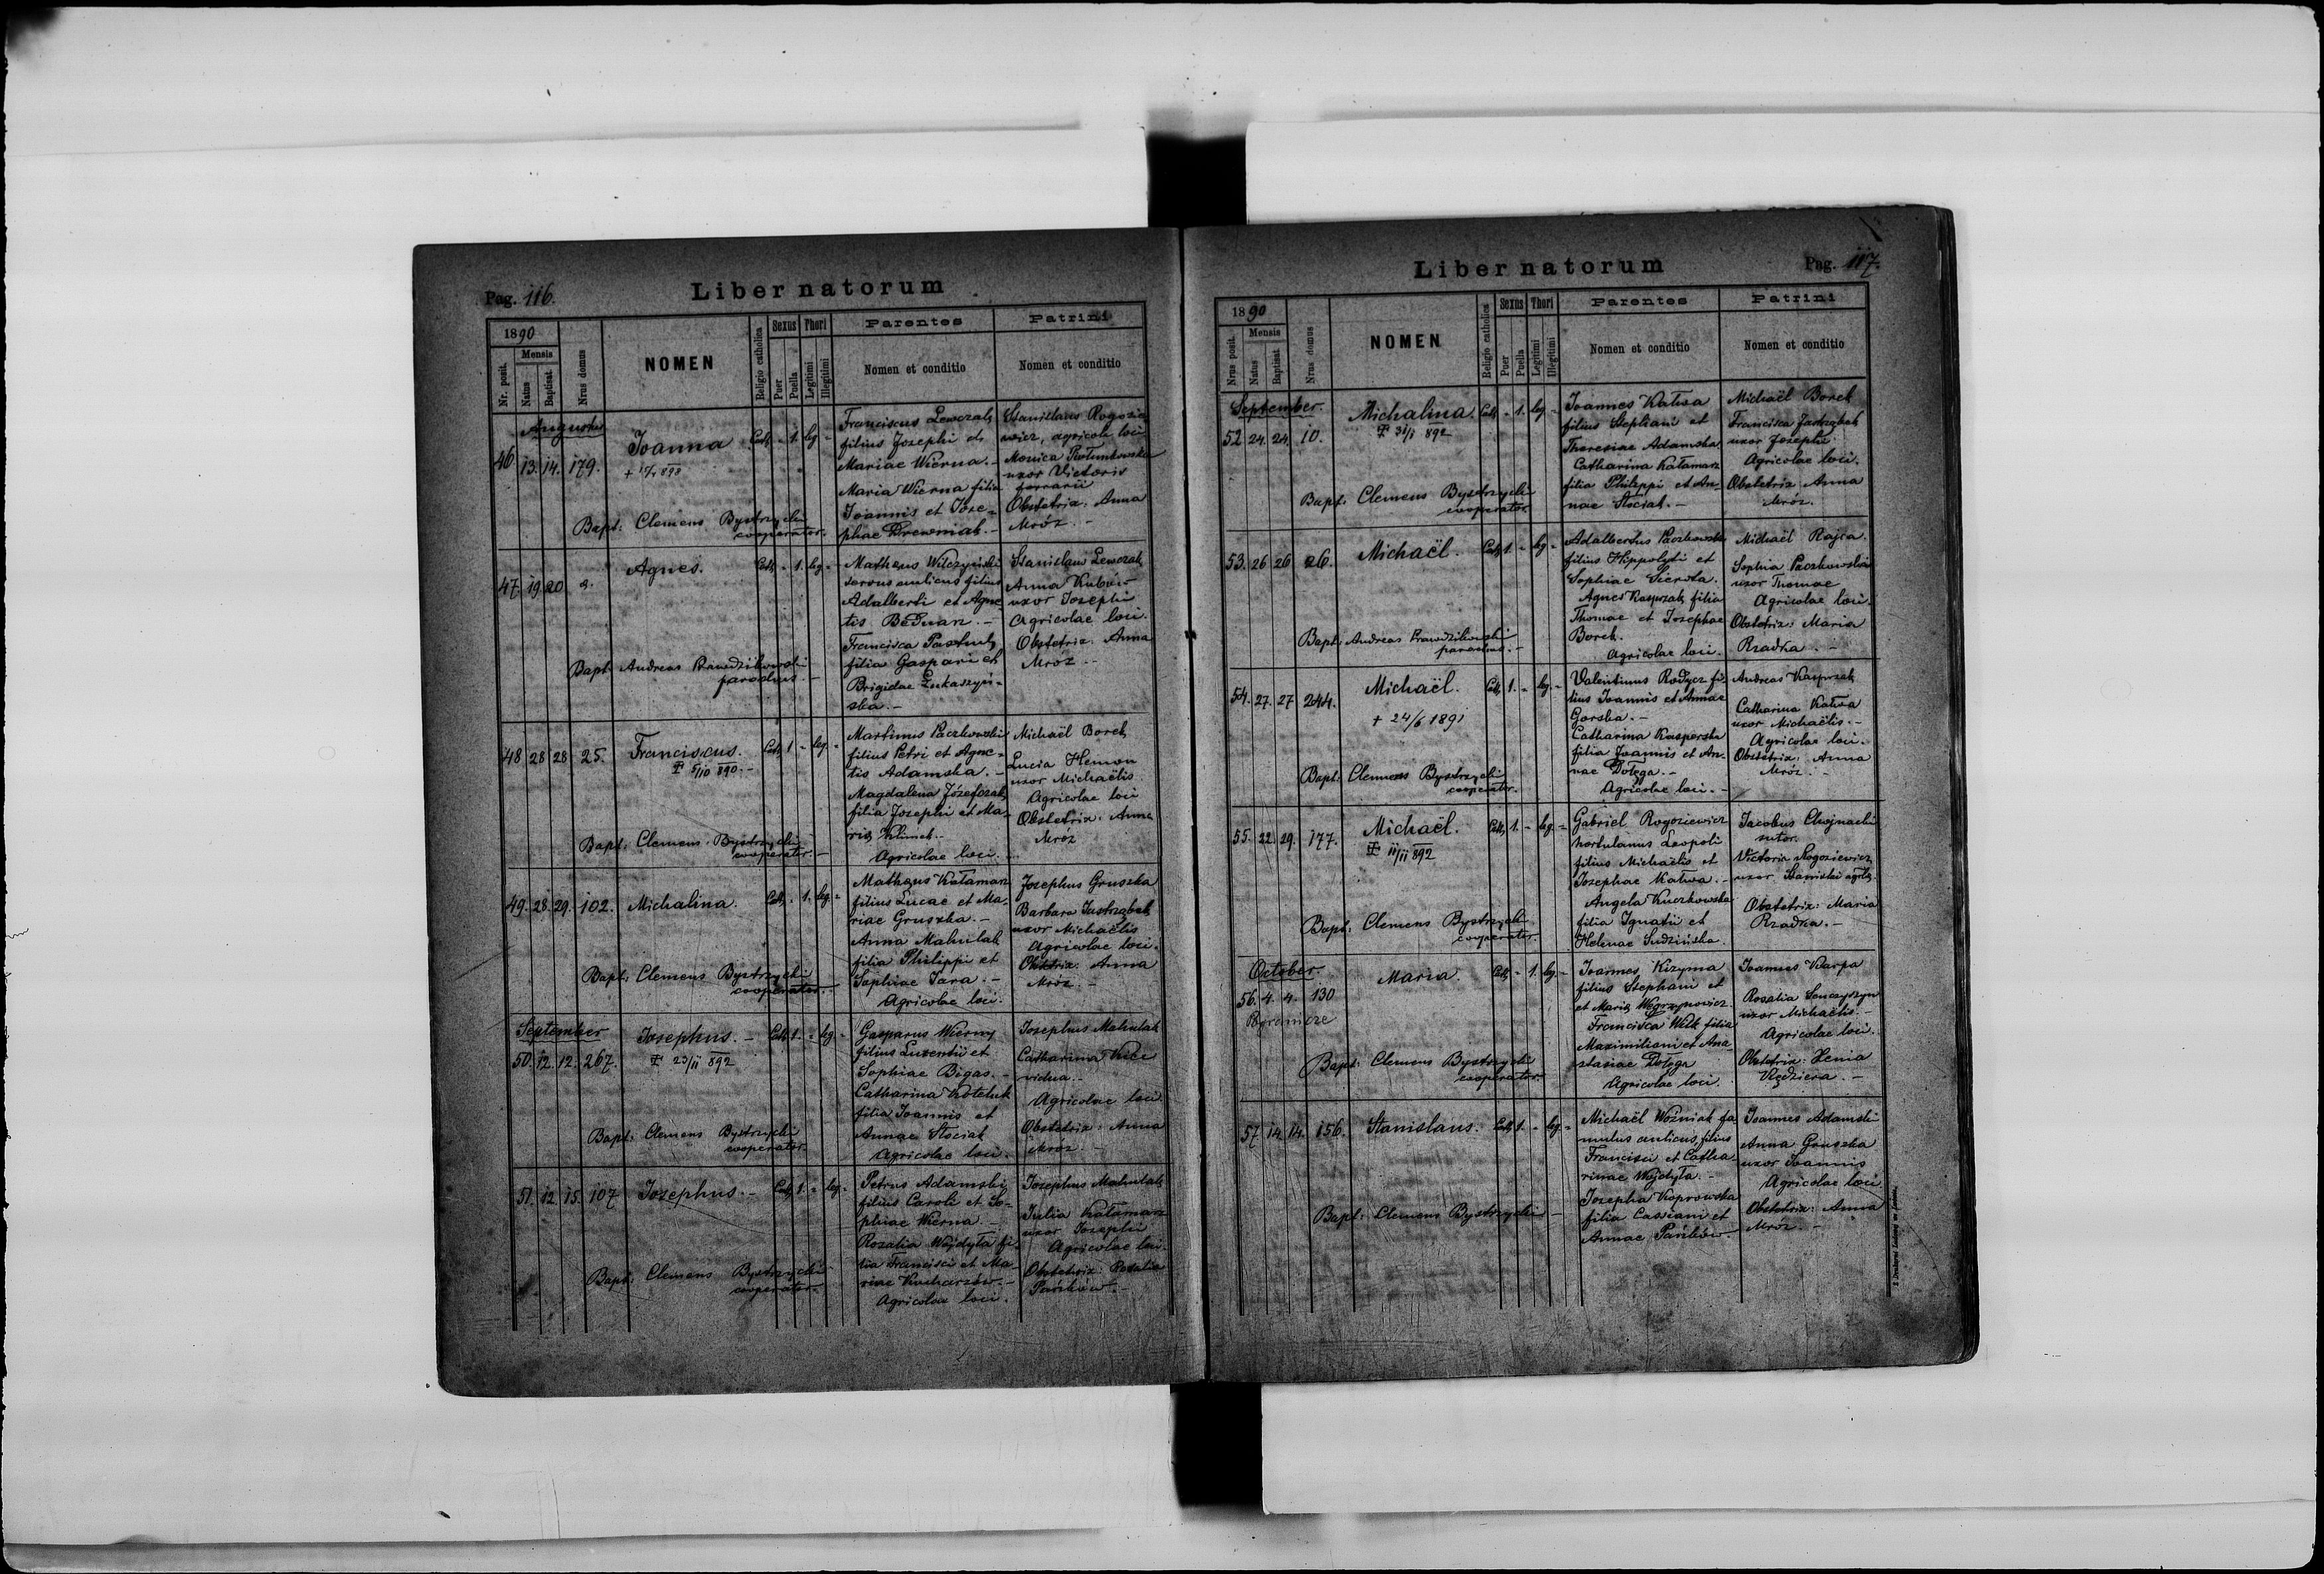 Pag. 116.
Liber natorum
1890
Nr. posit.
Mensis
Natus
Baptisat.
Nrus domus
NOMEN
Religio catholica
Sexus
Puer
Puella
Thori
Legitimi
Illegitimi
Parentes
Nomen et conditio
Patrini
Nomen et conditio
Augustus
46 13. 14. 179.
Joanna
Cath - 1. leg -
Franciscus Lewczak
filius Josephi et
Mariae Wierna. -
Maria Wierna filia
Joannis et Jose-
phae Drewniak. -
Stanislaus Rogozie
wicz, agricola loci
Monica
uxor Victoris
ferrarii
Obstetrix: Anna
Mróz. -
Bapt: Clemens Bystrzycki
cooperator.
47. 19 20
Agnes.
Cath - 1. leg -
Matheus Wilczyński
servus aulicus filius
Adalberti et Agne
tis Bednarz. -
Francisca
filia Gaspari et
Brigidae Łukaszyń-
ska. -
Stanislaus Lewczak
Anna Kubów
uxor Josephi
Agricolae loci.
Obstetrix: Anna
Mróz. -
Bapt Andreas Prawdzikowski
parochus. -
48 28 28 25.
Franciscus.
5/10 890. -
Cath 1 - leg. -
Martinus Paczkowski
filius Petri et Agne-
tis Adamska. -
Magdalena Józefczak
filia Josephi et Ma-
ria Klimek.
Agricolae loci. -
Michaël Borek
Lucia Hemon
uxor Michaëlis
Agricolae loci
Obstetrix: Anna
Mróz
Bapt: Clemens Bystrzycki
cooperator. -
49. 28. 29. 102.
Michalina.
Cath - 1. leg. -
Matheus Kałamarz
filius Lucae et Ma-
riae Gruszka. -
Anna Mahulak
filia Philippi et
Sophiae Jara. -
Agricolae loci.
Josephus Gruszka
Barbara Jastrząbek
uxor Michaëlis
Agricolae loci.
Obstetrix: Anna
Mróz. -
Bapt: Clemens Bystrzycki
cooperator. -
September
50. 12. 12. 267.
Josephus. -
23/11 892
Cath 1. - leg -
Gasparus Wierny
filius Luxentii et
Sophiae Bigas. -
Catharina Koteluk
filia Joannis et
Annae Stociak
Agricolae loci.
Josephus Mahulak
Catharina
vidua.
Agricolae loci
Obstetrix: Anna
Mróz. -
Bapt: Clemens Bystrzycki
cooperator.
51. 12. 15. 107
Josephus. -
Cath 1. - leg -
Petrus Adamski
filius Caroli et So-
phiae Wierna. -
Rozalia Wojdyła fi-
lia Francisci et Ma-
riae Kucharzów. -
Agricolae loci.
Josephus Mahulak
Julia Kałamarz
uxor Josephi
Agricolae loci.
Obstetrix: Rozalia
Pańków. -
Bapt: Clemens Bystrzycki
cooperator.
Liber natorum
Pag. 117.
1890
Nrus posit.
Mensis
Natus
Baptisat.
Nrus domus
NOMEN
Religio catholica
Sexus
Puer
Puella
Thori
Legitimi
Illegitimi
Parentes
Nomen et conditio
Patrini
Nomen et conditio
September.
52 24. 24. 10.
Michalina
31/1 892
Cath - 1. leg -
Joannes Katwa
filius Stephani et
Theresiae Adamska
Catharina Kałamarz
filia Philippi et An-
nae Stociak. -
Michaël Borek
Francisca Jastrząbek
uxor Josephi
Agricolae loci.
Obstetrix Anna
Mróz.
Bapt: Clemens Bystrzycki
cooperator
53. 26 26 26.
Michaël.
Cath 1. - leg -
Adalbertus Paczkowski
filius Hippolyti et
Sophiae Sierota.
Agnes Kasprzak filia
Thomae et Josephae
Borek.
Agricolae loci.
Michaël Rajca.
Sophia Paczkowska
uxor Thomae
Agricolae loci.
Obstetrix: Maria
Rzadka. -
Bapt: Andreas Prawdzikowski
parochus. -
54. 27. 27 244.
Michaël.
+ 24/6 1891
Cath 1. - leg. -
Valentinus Rodycz fi-
lius Joannis et Annae
Gorska. -
Catharina Kasperska
filia Joannis et An-
nae Dołęga. -
Agricolae loci. -
Andreas Kasprzak
Catharina Katwa
uxor Michaëlis. -
Agricolae loci. -
Obstetrix: Anna
Mróz. -
Bapt: Clemens Bystrzycki
cooperator.
55. 22. 29. 177.
Michaël.
11/11 892
Cath 1. - leg. -
Gabriel Rogoziewicz
hortulanus Leopoli
filius Michaëlis et
Josephae Katwa. -
Angela Kuczkowska
filia Ignatii et
Helenae Sudzińska.
Jacobus Chojnacki
sutor.
Victoria Rogoziewicz
uxor Stanislai agrlae
Obstetrix: Maria
Rzadka. -
Bapt: Clemens Bystrzycki
cooperator.
October.
56. 4. 4. 130
Maria.
Cath - 1. leg. -
Joannes Kizyma
filius Stephani et
et Maria Węgrzynowicz.
Francisca Wilk filia
Maximiliani et Ana-
stasiae Dołęga
Agricolae loci.
Joannes Karpa
Rosalia Senczyszyn
uxor Michaëlis. -
Agricolae loci.
Obstetrix: Xenia
Kędziera. -
Bapt: Clemens Bystrzycki
cooperator.
57. 14. 14. 156.
Stanislaus.
Cath 1. - leg. -
Michaël Woźniak fa-
mulus aulicus, filius
Francisci et Catha-
rinae Wojdyła. -
Josepha Koprowska
filia Cassiani et
Annae Pańków
Joannes Adamski
Anna Gruszka
uxor Joannis
Agricolae loci
Obstetrix: Anna
Mróz. -
Bapt: Clemens Bystrzycki -